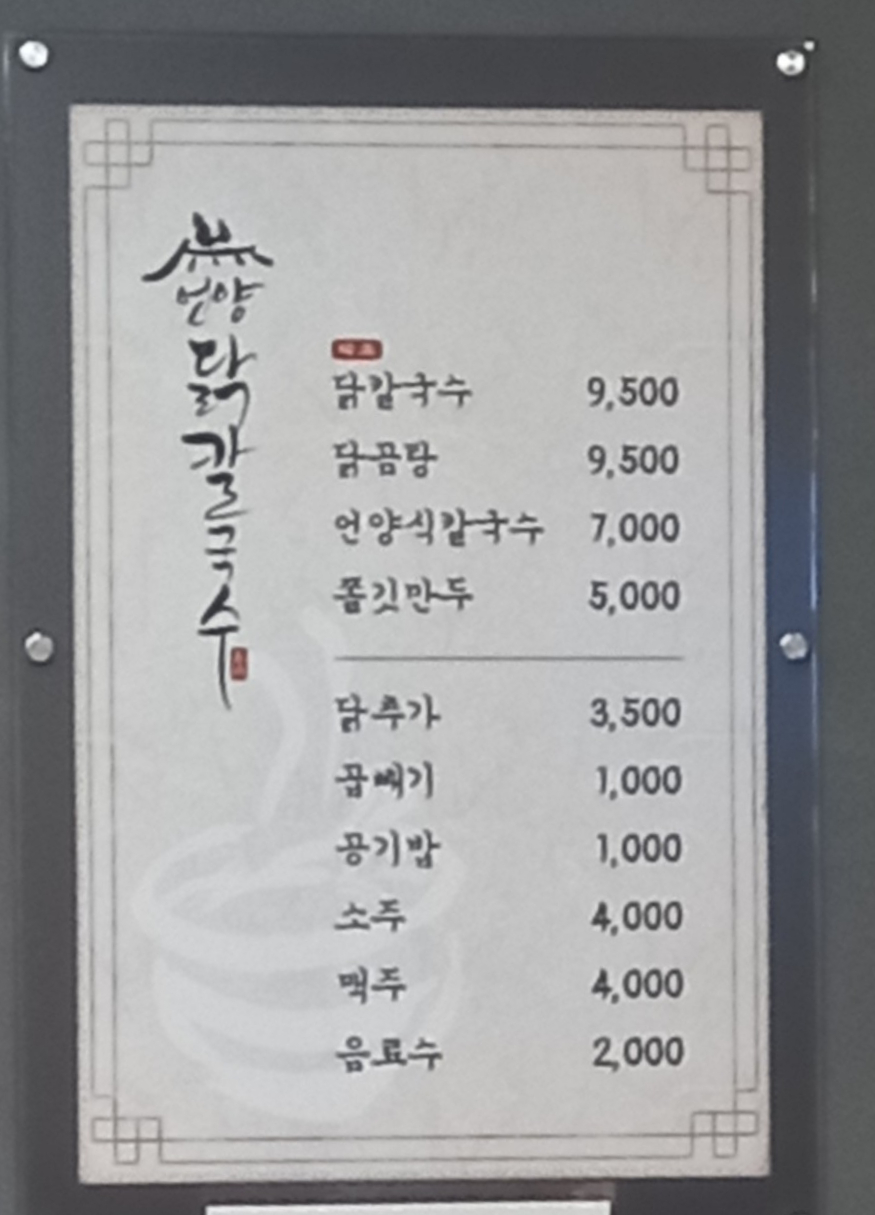 언양
닭칼국수
닭칼국수 9,500
닭곰탕 9,500
언양식칼국수 7,000
쫄깃만두 5,000
닭추가 3,500
곱빼기 1,000
공기밥 1,000
소주 4,000
맥주 4,000
음료수 2,000